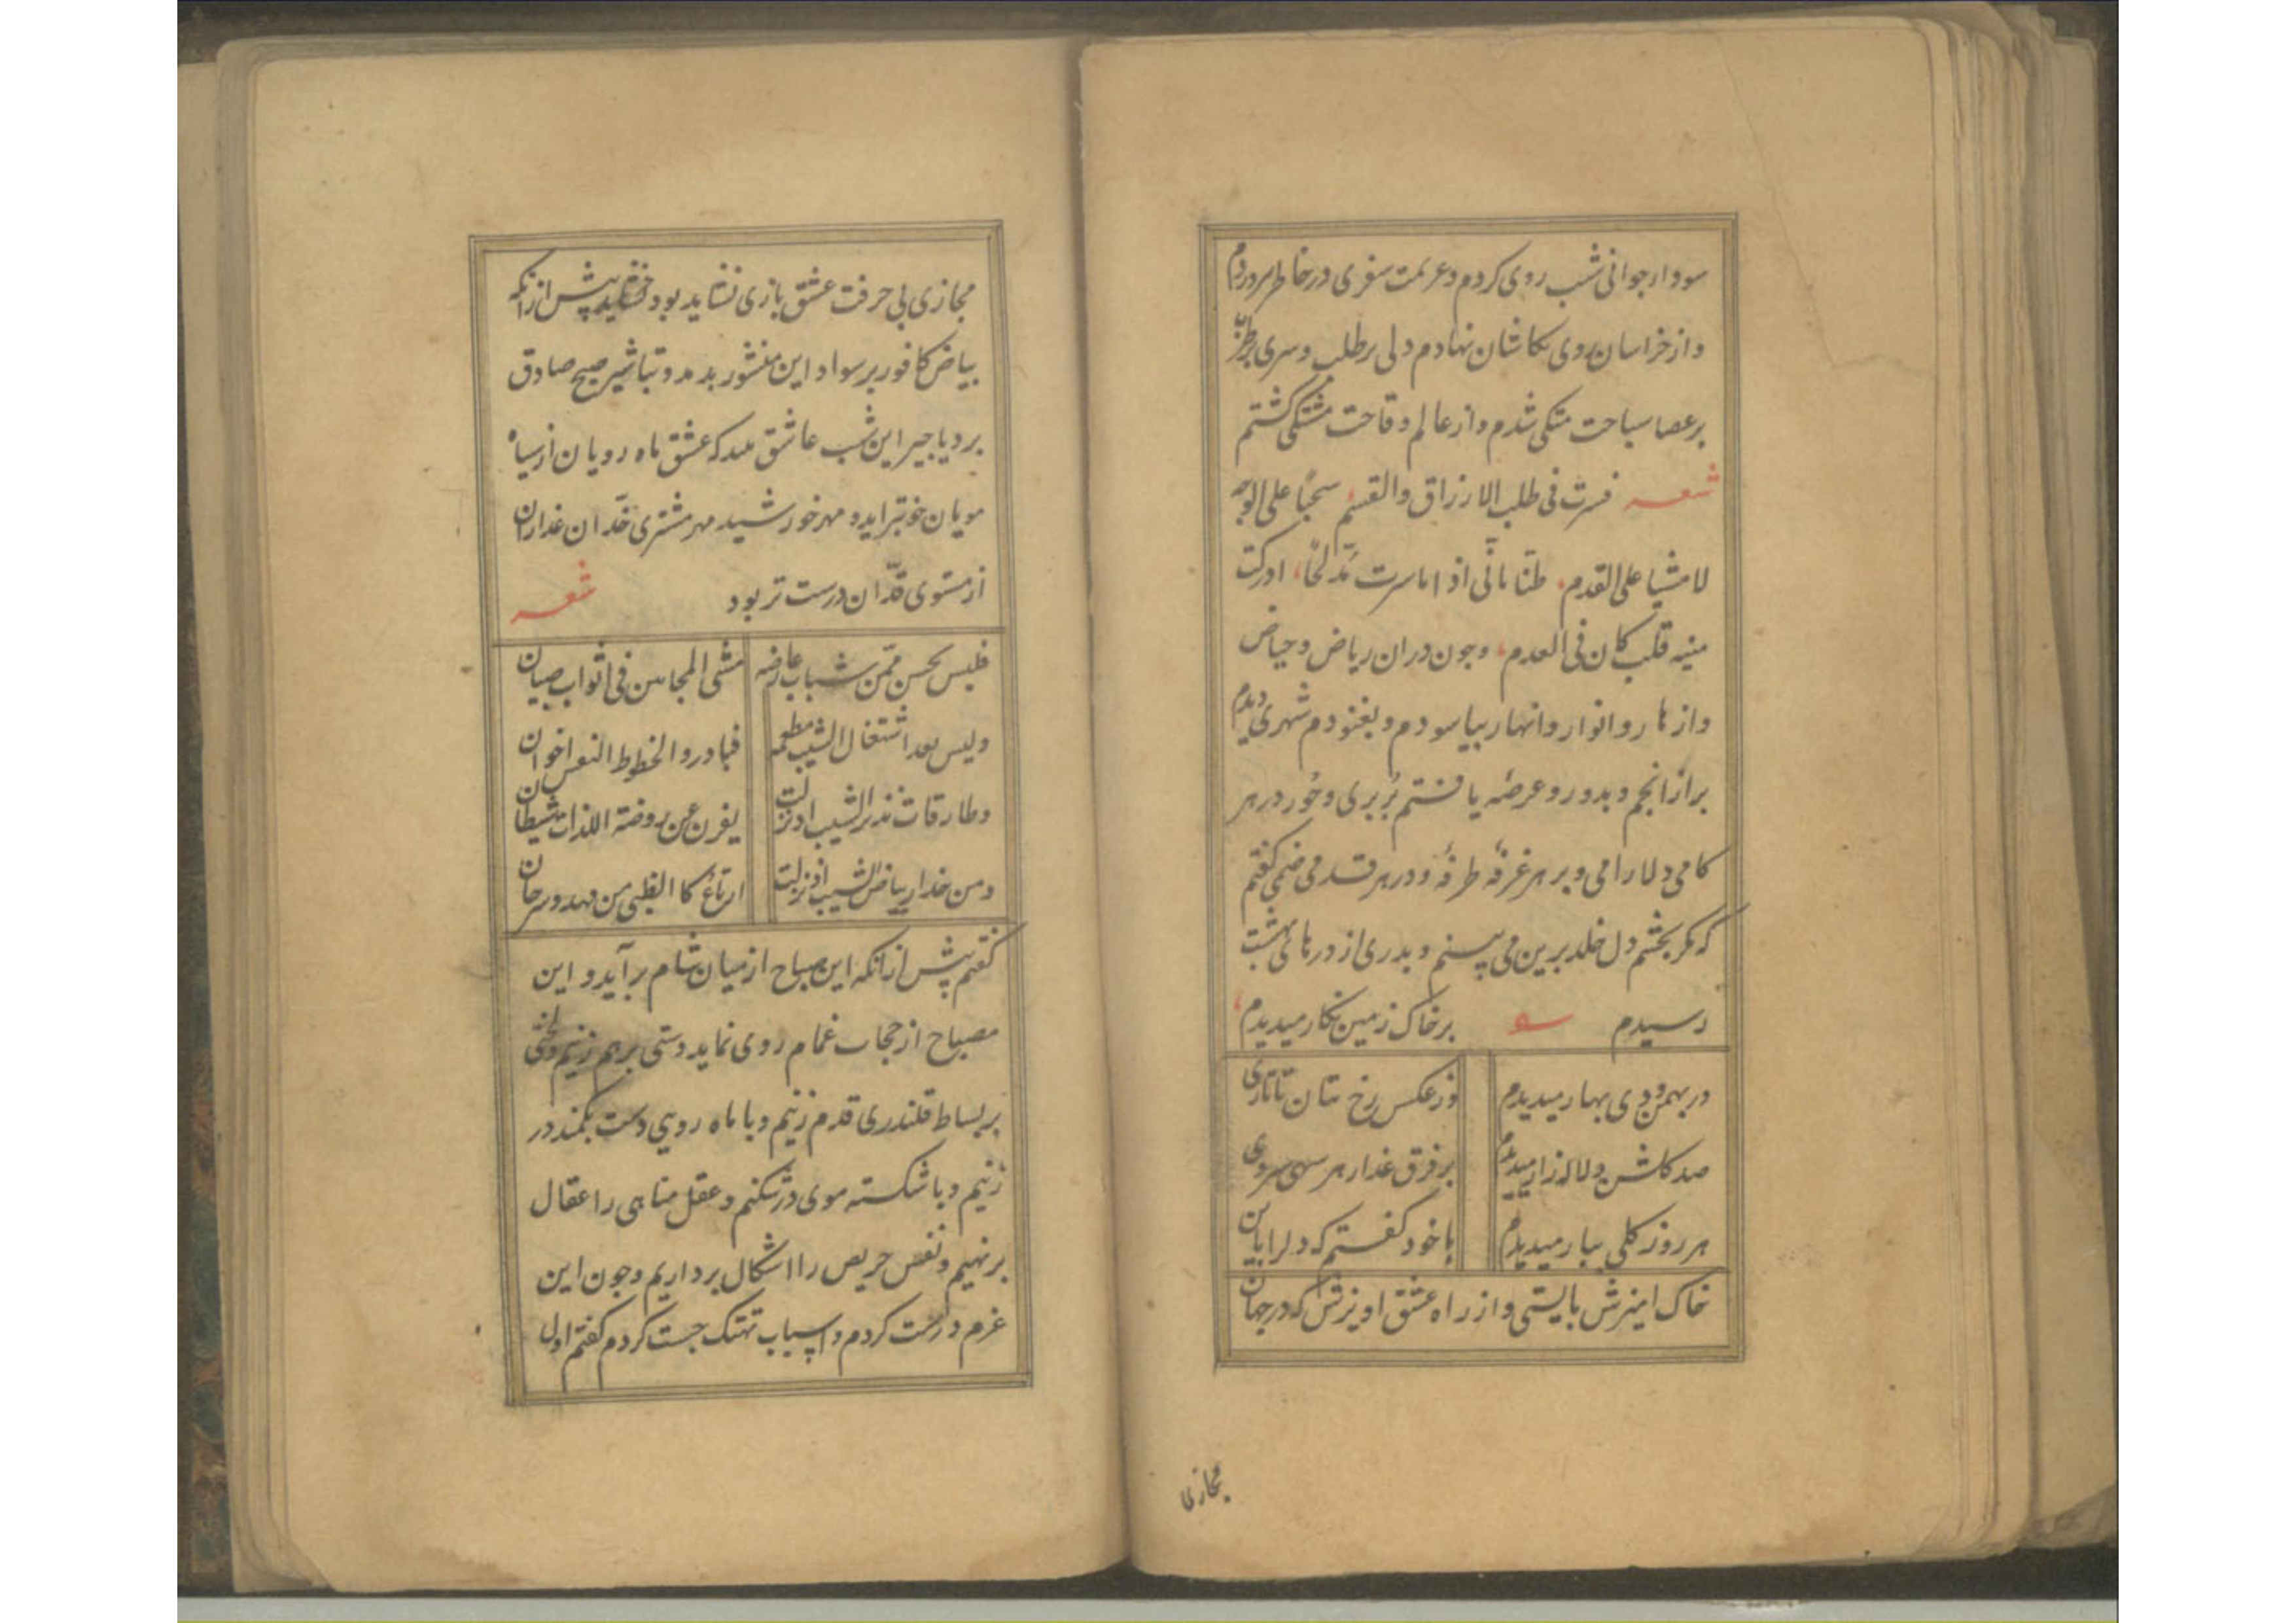 سودا جوانی شب روی کردم و عزیمت سفری در خاطر آوردم
و از خراسان روی بکاشان نهادم دلی بر طلب و سری بر طرب
بر عصا سیاحت متکی شدم و از عالم وقاحت مشتکی گشتم
شعر فسرت فی طلب الارزاق والقسم سحبا علی الوجه
لا مشیا علی القدم طنا بانی اذا ما سرت مدلجا ادرکت
منیه قلب کان فی العدم وجون دران ریاض و حیاض
و ازهار و انوار و انهار بیاسودم و بغنودم شهری دیدم
بر از انجم و بدور و عرصه یافتم بر بری و حور در هر
کامی دلارامی و بر هر غرفه طرفه و در هر قدمی صنمی گفتم
که مکر بچشم دل خلد برین می بینم و بدری از درهای بهشت
رسیدم برخاک زمین نکار میدیدم
در بهمن و دی بهار میدیدم وز عکس رخ بتان تاتاری
صد کلشن و لاله زار میدیدم بر فرق عذار هر سهی سروی
هر روز کلی ببار میدیدم با خود گفتم که دلرا با این
خاک امیزش بایستی و از راه عشق اویزش که در جهان
مجازی
مجازی بی حرفت عشق بازی نشاید بود پیش از انکه
بیاض کافور بر سواد این منشور بدمد و تباشیر صبح صادق
بر دیاجیر این شب عاشق بخندد که عشق ماه رویان از سیاه
مویان خوبتر اید و مهر خورشید مهر مشتری خدان غداران
از مستوی قدان درست تر بود شعر
فلیس یحسن ممن شباب عارضه مشی المجانین فی اثواب صبیان
ولیس بعد اشتعال الشیب مطمعه فبادروا لحظوظ النفس اخوان
وطارقات نذیر الشیب اذ نزلت یفرن عن روضة اللذات شیطان
ومن غدا ببیاض الشیب اذ نزلت ارتاع کالظبی من فهد و سرحان
گفتم پیش از انکه این صباح از میان شام برآید و این
مصباح از حجاب غمام روی نماید دستی بر هم زنیم و لختی
بر بساط قلندری قدم زنیم و با ماه رویی دست بکمند در
زنیم و با شکسته موی در شکنیم و عقل مناهی را عقال
بر نهیم و نفس حریص را اشکال برداریم وجون این
عزم درست کردم و اسباب تهتک جست کردم گفتم اول